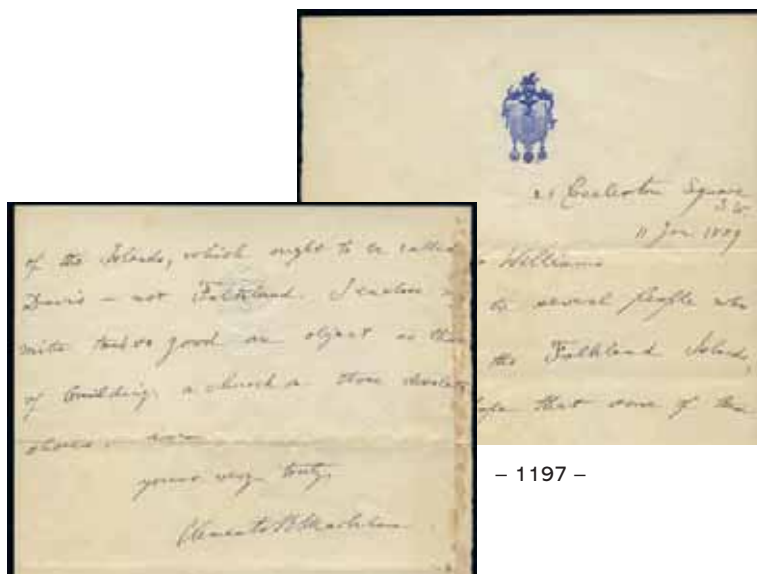 21 Eccleston Square
S.W.
11 Jan 1889
Williams
to several people who
the Falkland Islands,
hope that some of them
of the Islands, which ought to be called
Davis – not Falkland. I enclose a
mite towards so good an object as that
of building a church on those desolate
shores.
yours very truly,
Clements R Markham
– 1197 –